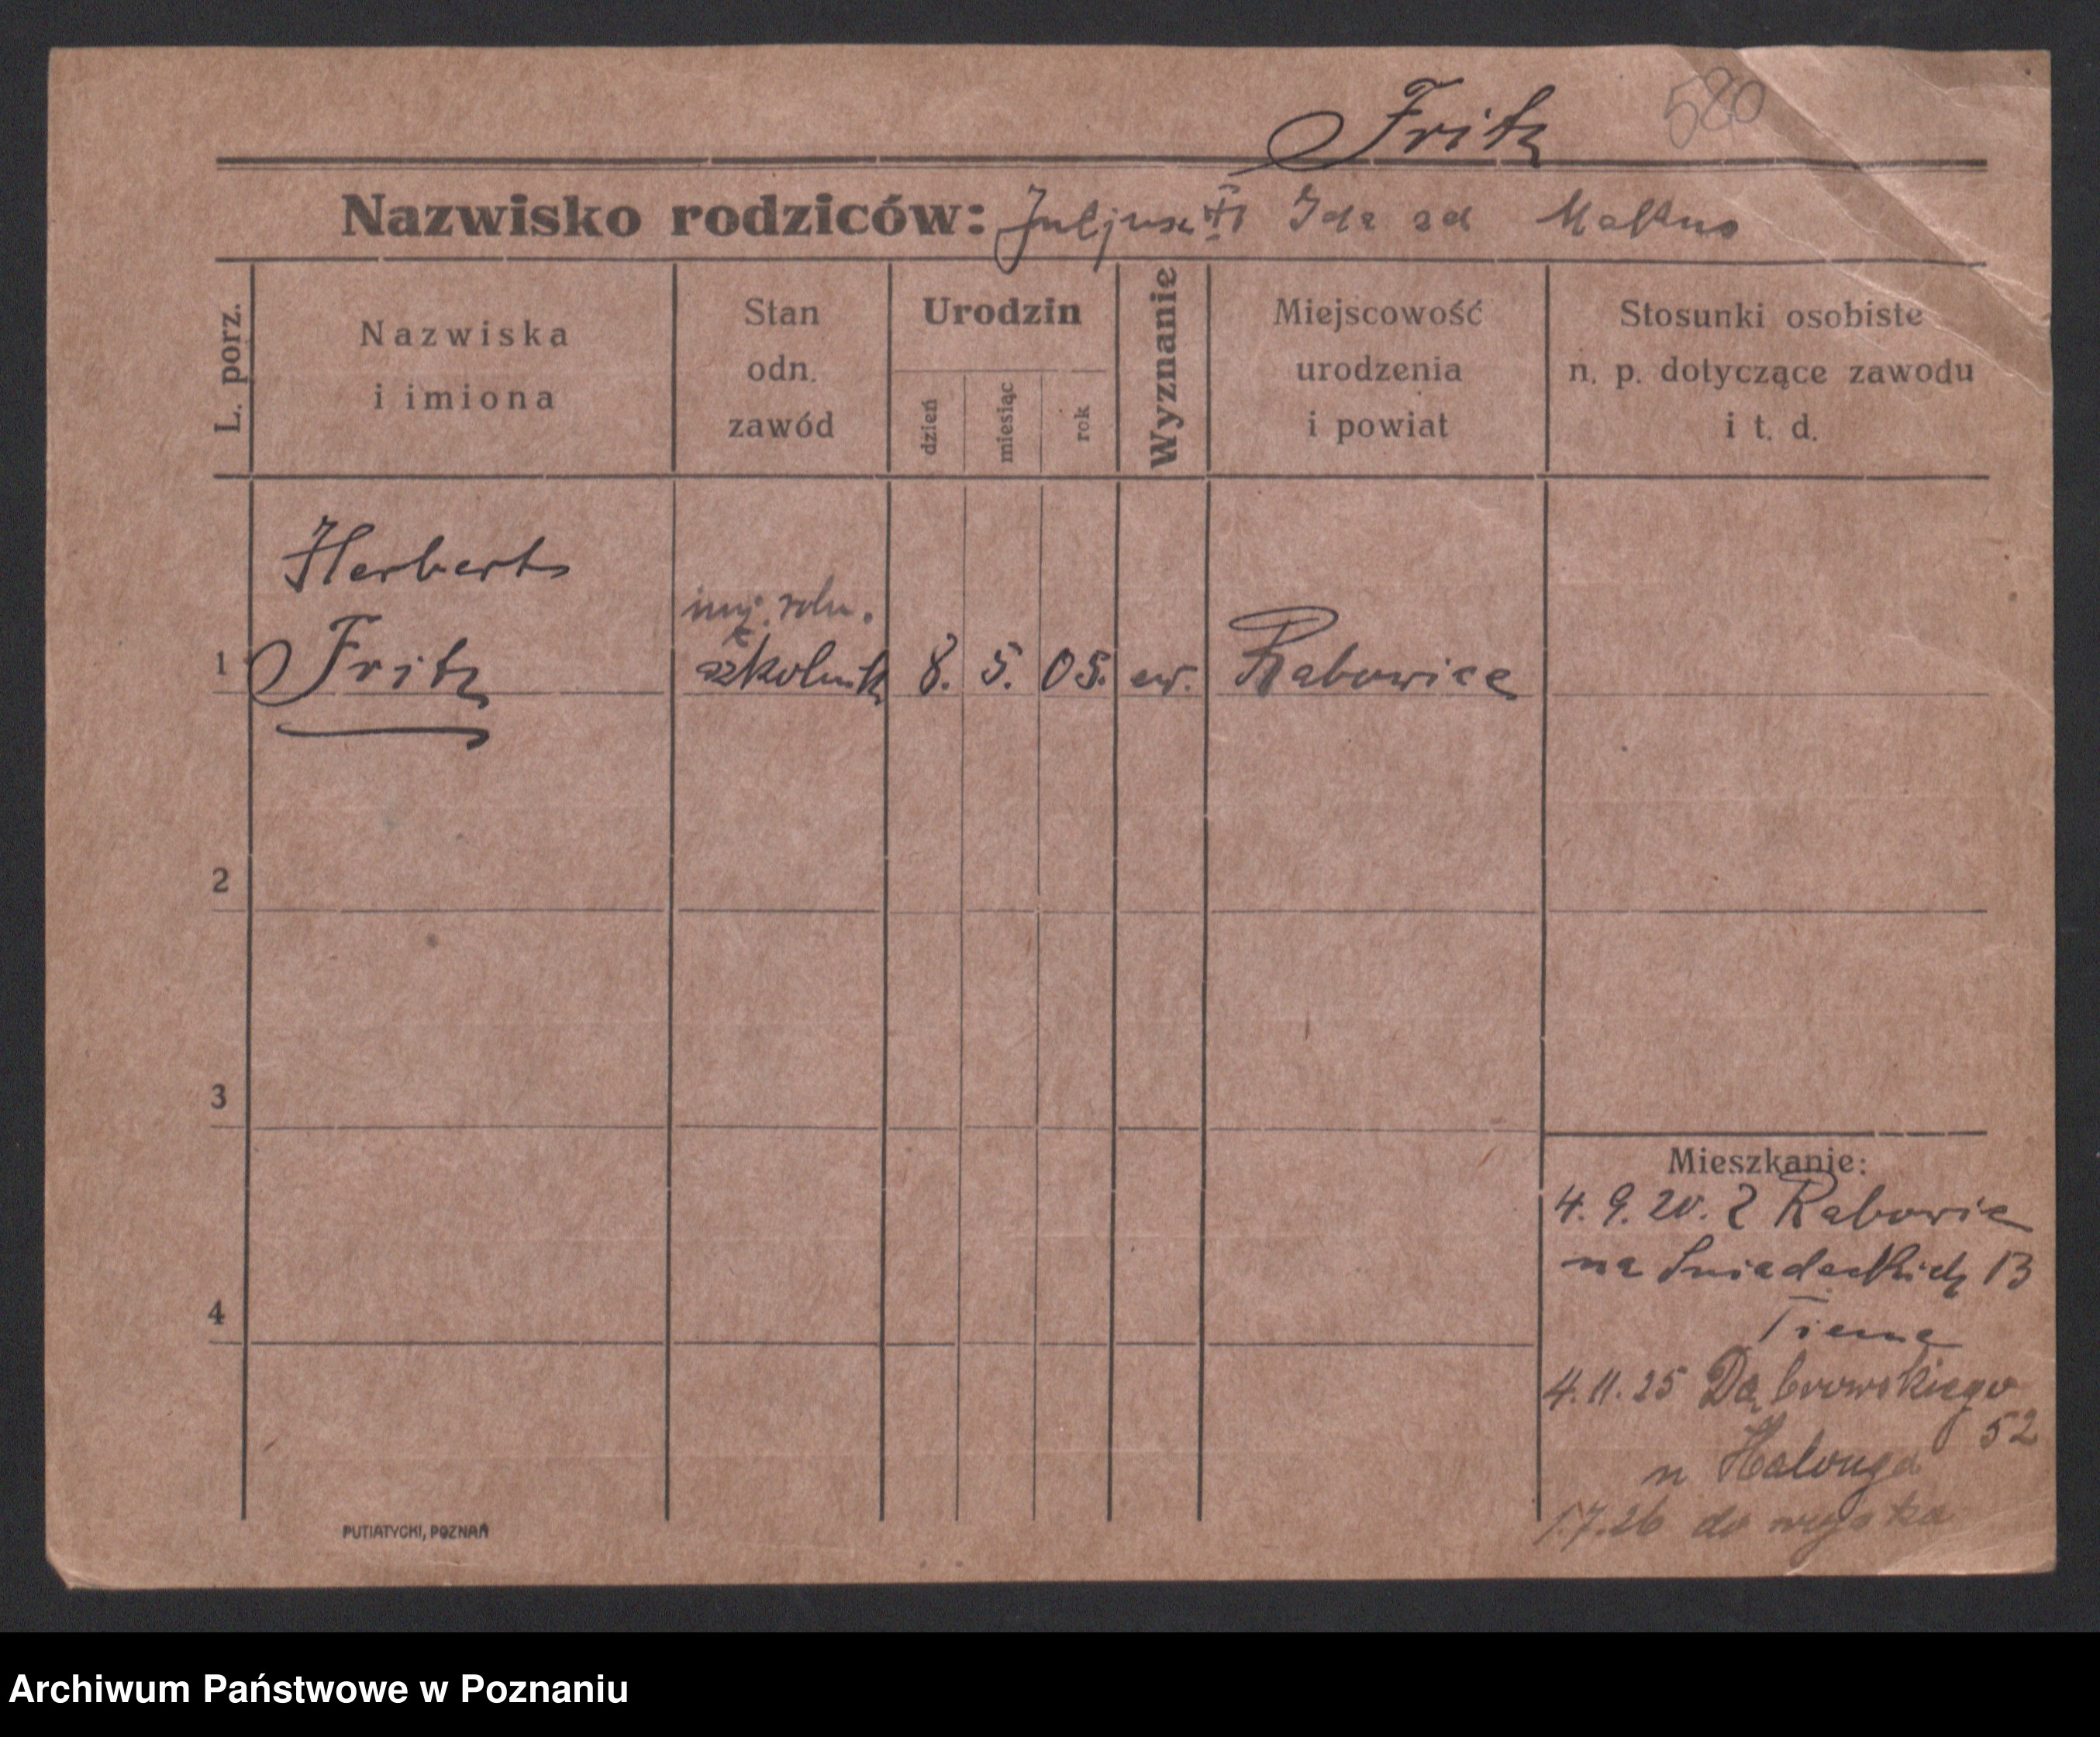 Fritz
580
Nazwisko rodziców: Juljusz Ida zd
L. porz.
Nazwiska
i imiona
Stan
odn.
zawód
Urodzin
dzień
miesiąc
rok
Wyznanie
Miejscowość
urodzenia
i powiat
Stosunki osobiste
n. p. dotyczące zawodu
i t. d.
Herbert
roln.
1 Fritz szkolnik 8. 5. 05. ew. Rabowice
2
3
4
Mieszkanie:
4. 9. 20. Z Rabowic
na Sniadeckich 13
Tieme
4. 11. 25 Dąbrowskiego
52
n
1.7.26 do
PUTIATYCKI, POZNAŃ
Archiwum Państwowe w Poznaniu